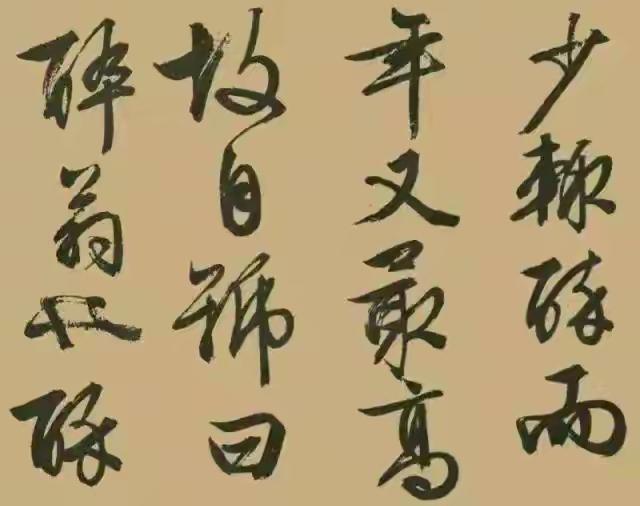 少輒醉而
年又最高
故自號曰
醉翁也醉